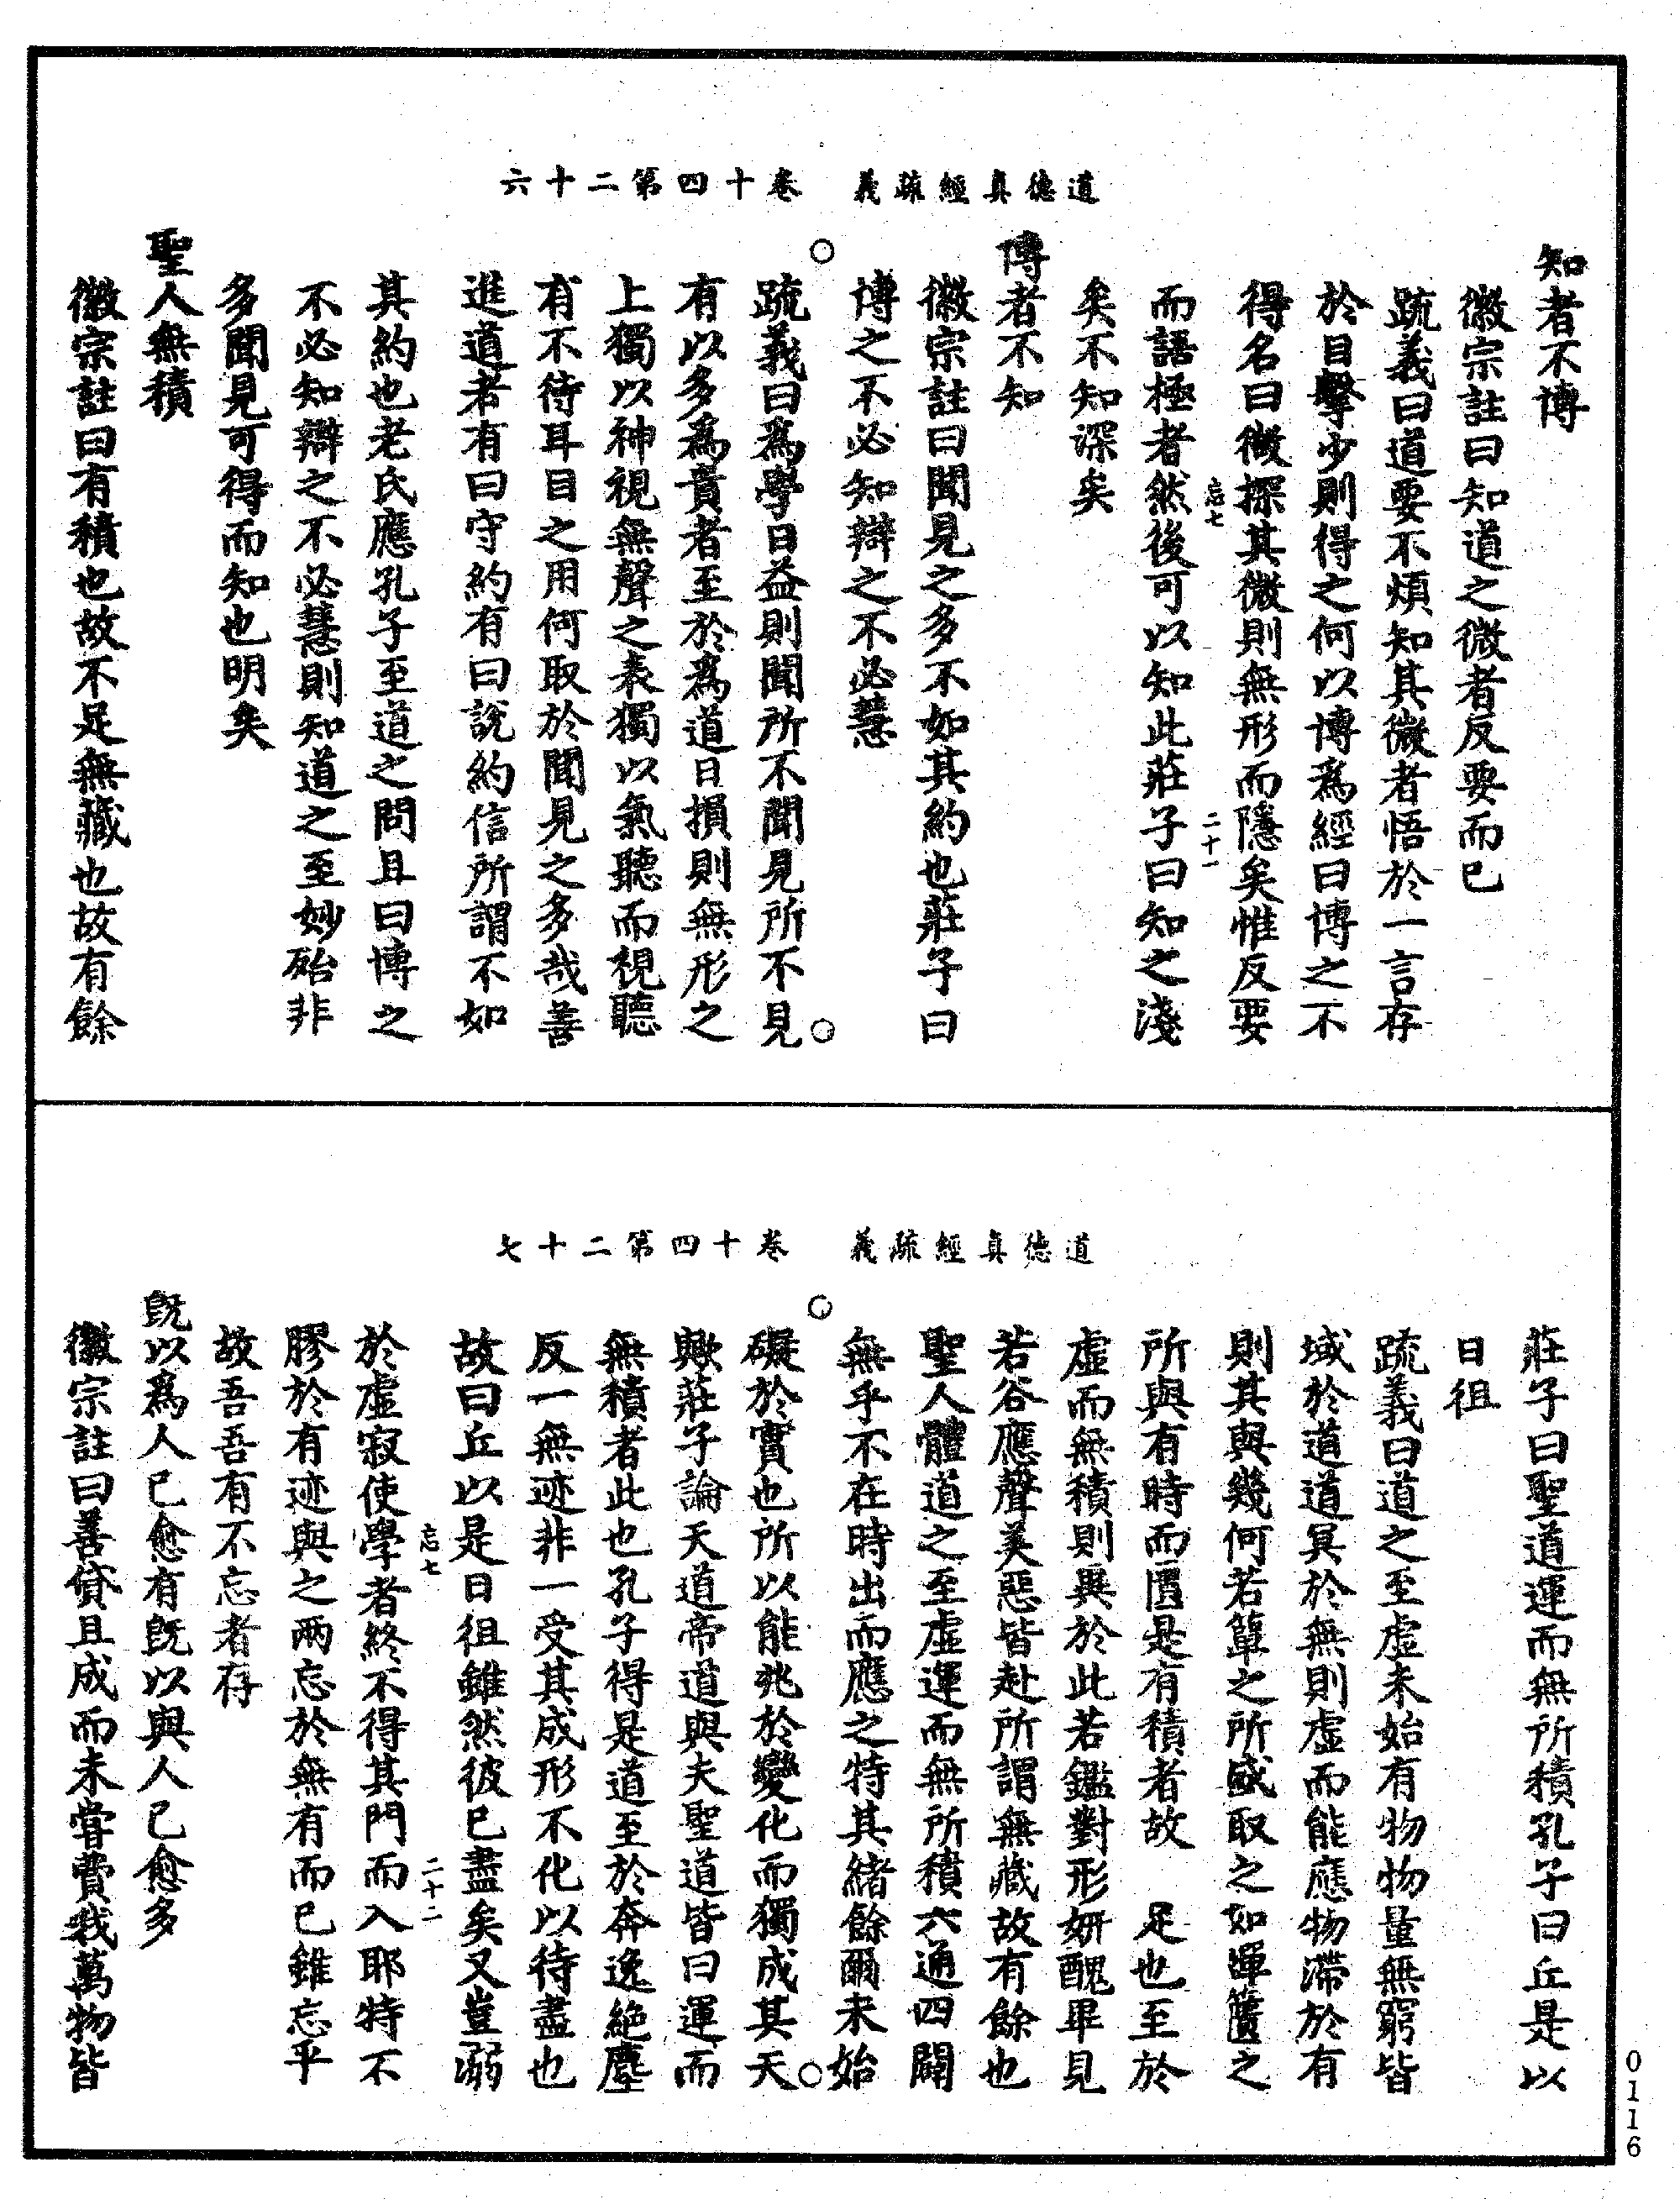 道德真經疏義　卷十四第二十六
知者不博
徽宗註曰知道之微者反要而已
疏義曰道要不煩知其微者悟於一言存
於目擊少則得之何以博爲經曰博之不
得名曰微探其微則無形而隱矣惟反要
忘七　二十一
而語極者然後可以知此莊子曰知之淺
矣不知深矣
博者不知
徽宗註曰聞見之多不如其約也莊子曰
博之不必知辯之不必慧
疏義曰爲學日益則聞所不聞見所不見
有以多爲貴者至於爲道日損則無形之
上獨以神視無聲之表獨以氣聽而視聽
有不待耳目之用何取於聞見之多哉善
進道者有曰守約有曰說約信所謂不如
其約也老氏應孔子至道之問且曰博之
不必知辯之不必慧則知道之至妙殆非
多聞見可得而知也明矣
聖人無積
徽宗註曰有積也故不足無藏也故有餘
道德真經疏義　卷十四第二十七
莊子曰聖道運而無所積孔子曰丘是以
日徂
疏義曰道之至虛未始有物物量無窮皆
域於道道冥於無則虛而能應物滯於有
則其與幾何若簞之所盛取之如運篋之
所與有時而匱是有積者故　足也至於
虛而無積則異於此若鑑對形妍醜畢見
若谷應聲美惡皆赴所謂無藏故有餘也
聖人體道之至虛運而無所積六通四闢
無乎不在時出而應之特其緒餘爾未始
礙於實也所以能兆於變化而獨成其天
歟莊子論天道帝道與夫聖道皆曰運而
無積者此也孔子得是道至於奔逸絶塵
反一無迹非一受其成形不化以待盡也
故曰丘以是日徂雖然彼已盡矣又豈溺
忘七　二十二
於虛寂使學者終不得其門而入耶特不
膠於有迹與之兩忘於無有而已雖忘乎
故吾吾有不忘者存
旣以爲人己愈有旣以與人己愈多
徽宗註曰善貸且成而未嘗費我萬物皆
0116